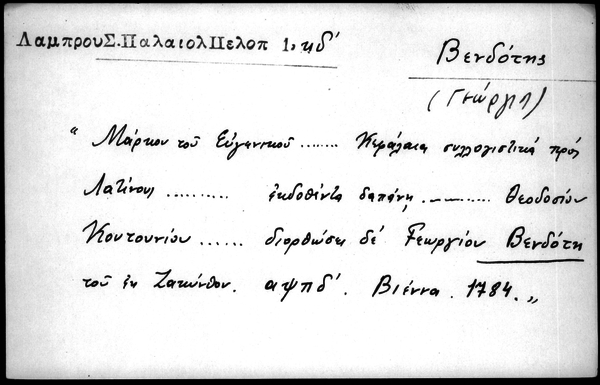 ΛαμπρουΣ.ΠαλαιολΠελοπ 1, κδ′
Βενδότης
(Γεώργιος)
" Μάρκου τοῦ Εὐγενικοῦ ........ Κεφάλαια συλλογιστικά πρός
Λατίνους .......... ἐκδοθέντα δαπάνῃ .......... Θεοδοσίου
Κουτουνίου ...... διορθώσει δέ Γεωργίου Βενδότη
τοῦ ἐκ Ζακύνθου. αψπδ′. Βιέννα. 1784. "